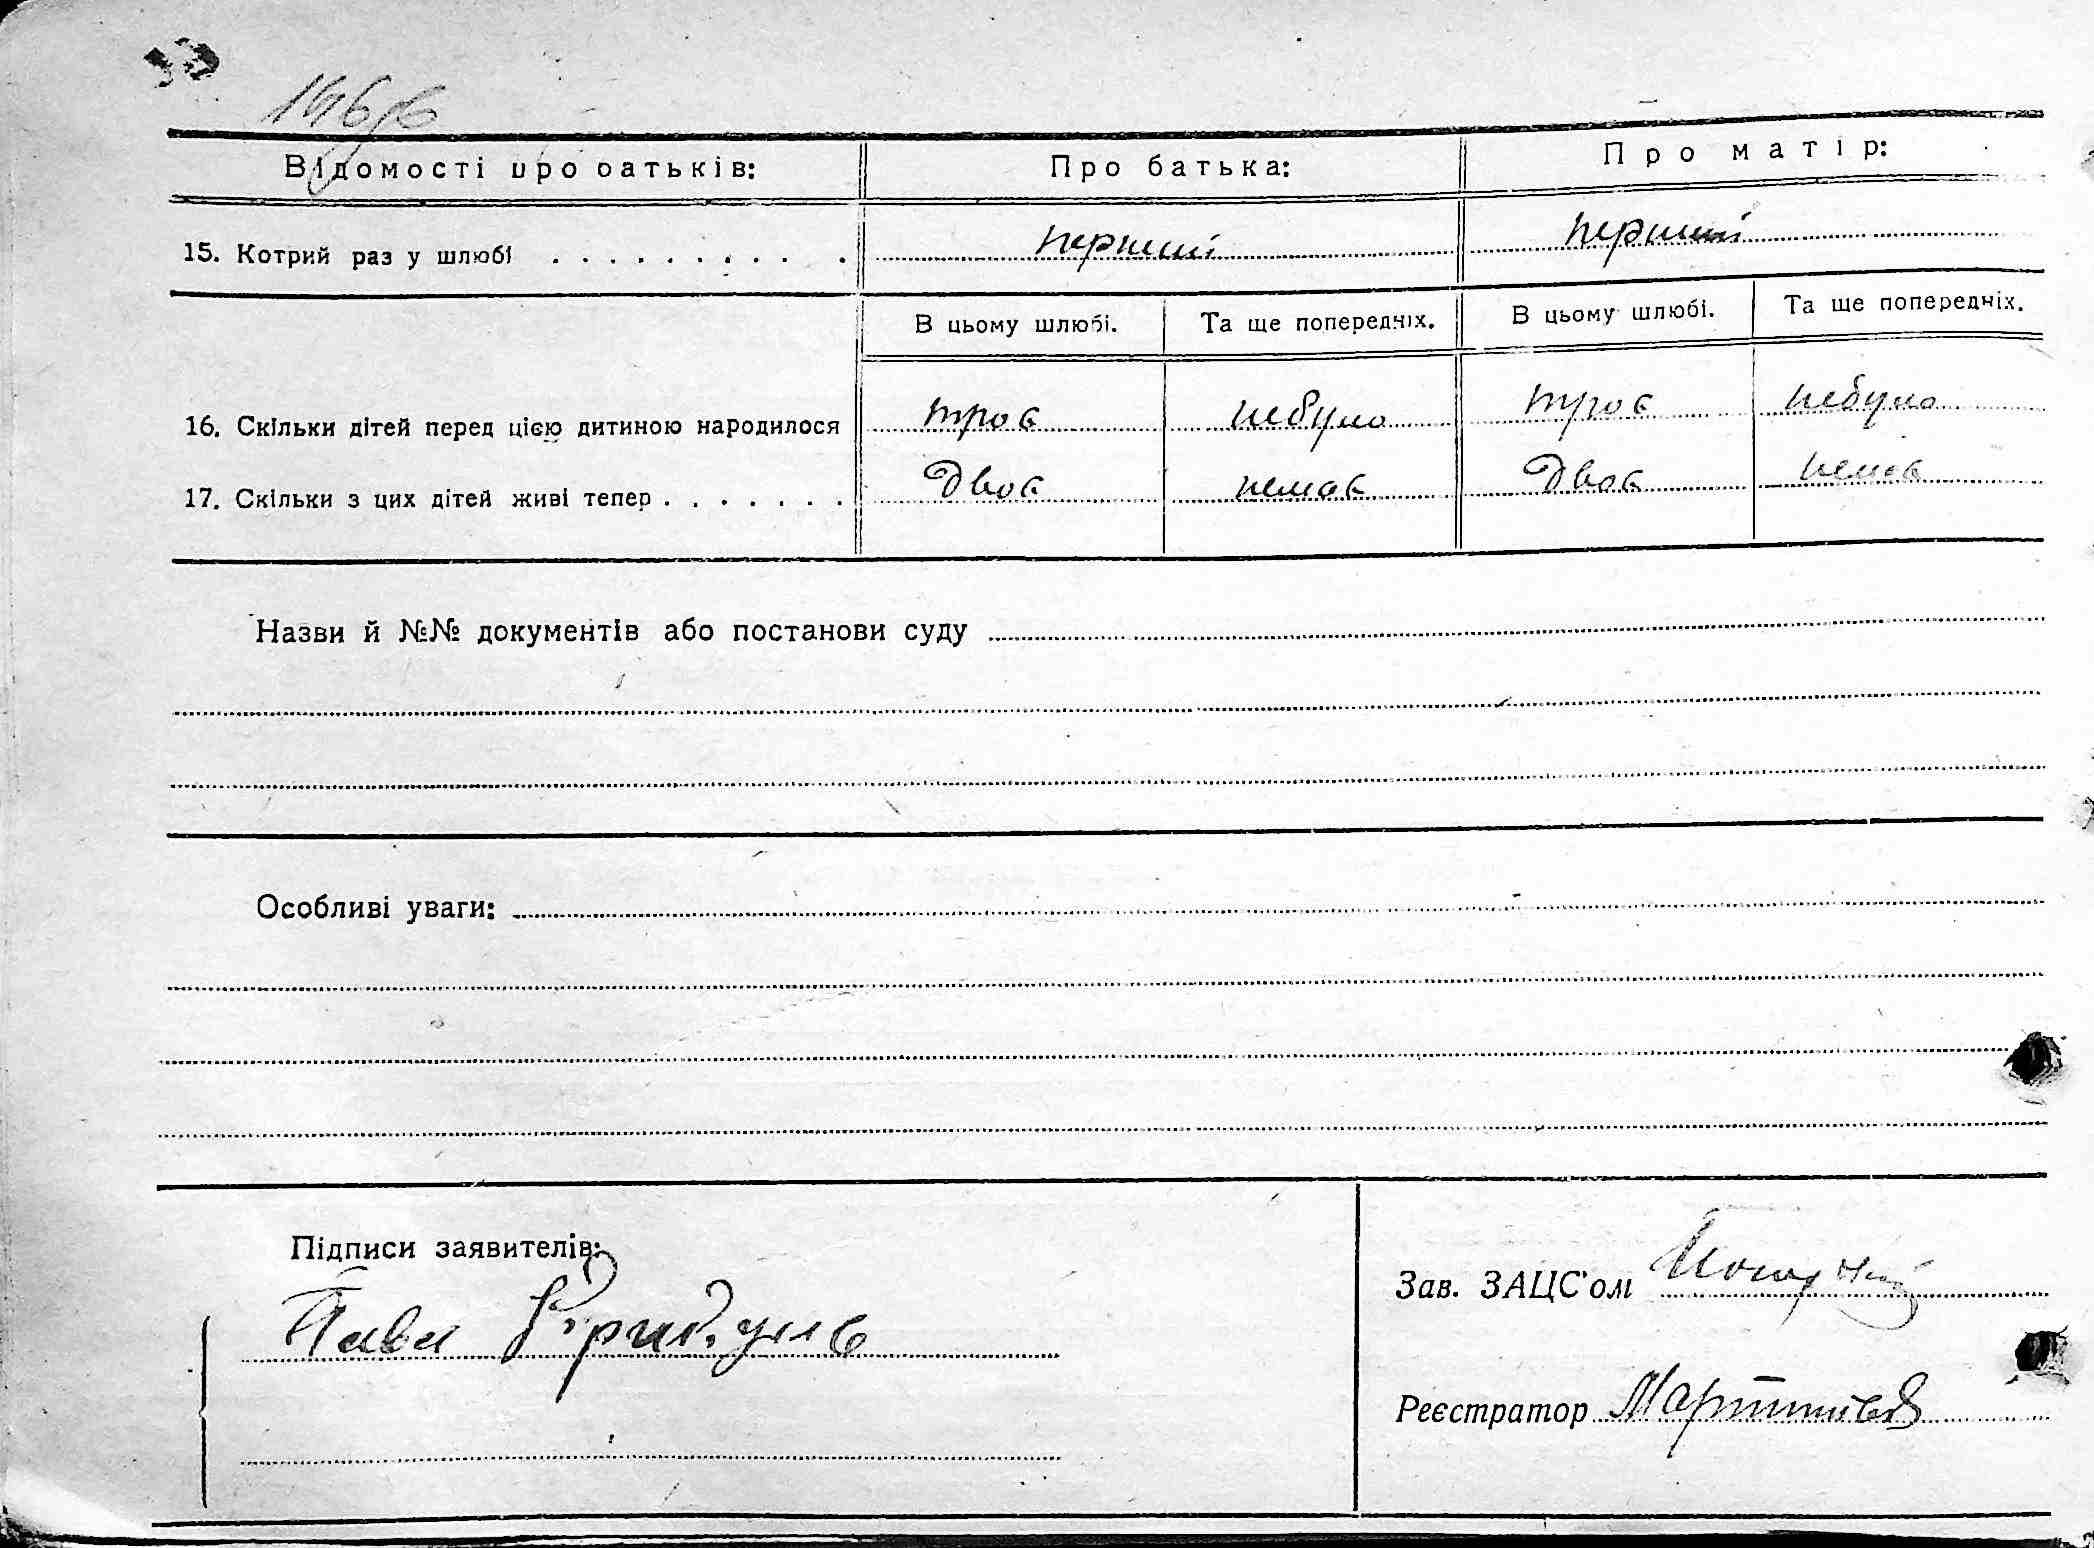 Відомості про батьків:
Про батька:
Про матір:
15. Котрий раз у шлюбі
перший
перший
В цьому шлюбі.
Та ще попередніх.
В цьому шлюбі.
Та ще попередніх.
16. Скільки дітей перед цією дитиною народилося
троє
небуло
троє
небуло
17. Скільки з цих дітей живі тепер
Двоє
немає
Двоє
немає
Назви й №№ документів або постанови суду
Особливі уваги:
Підписи заявителів:
Зав. ЗАЦС'ом
Реєстратор